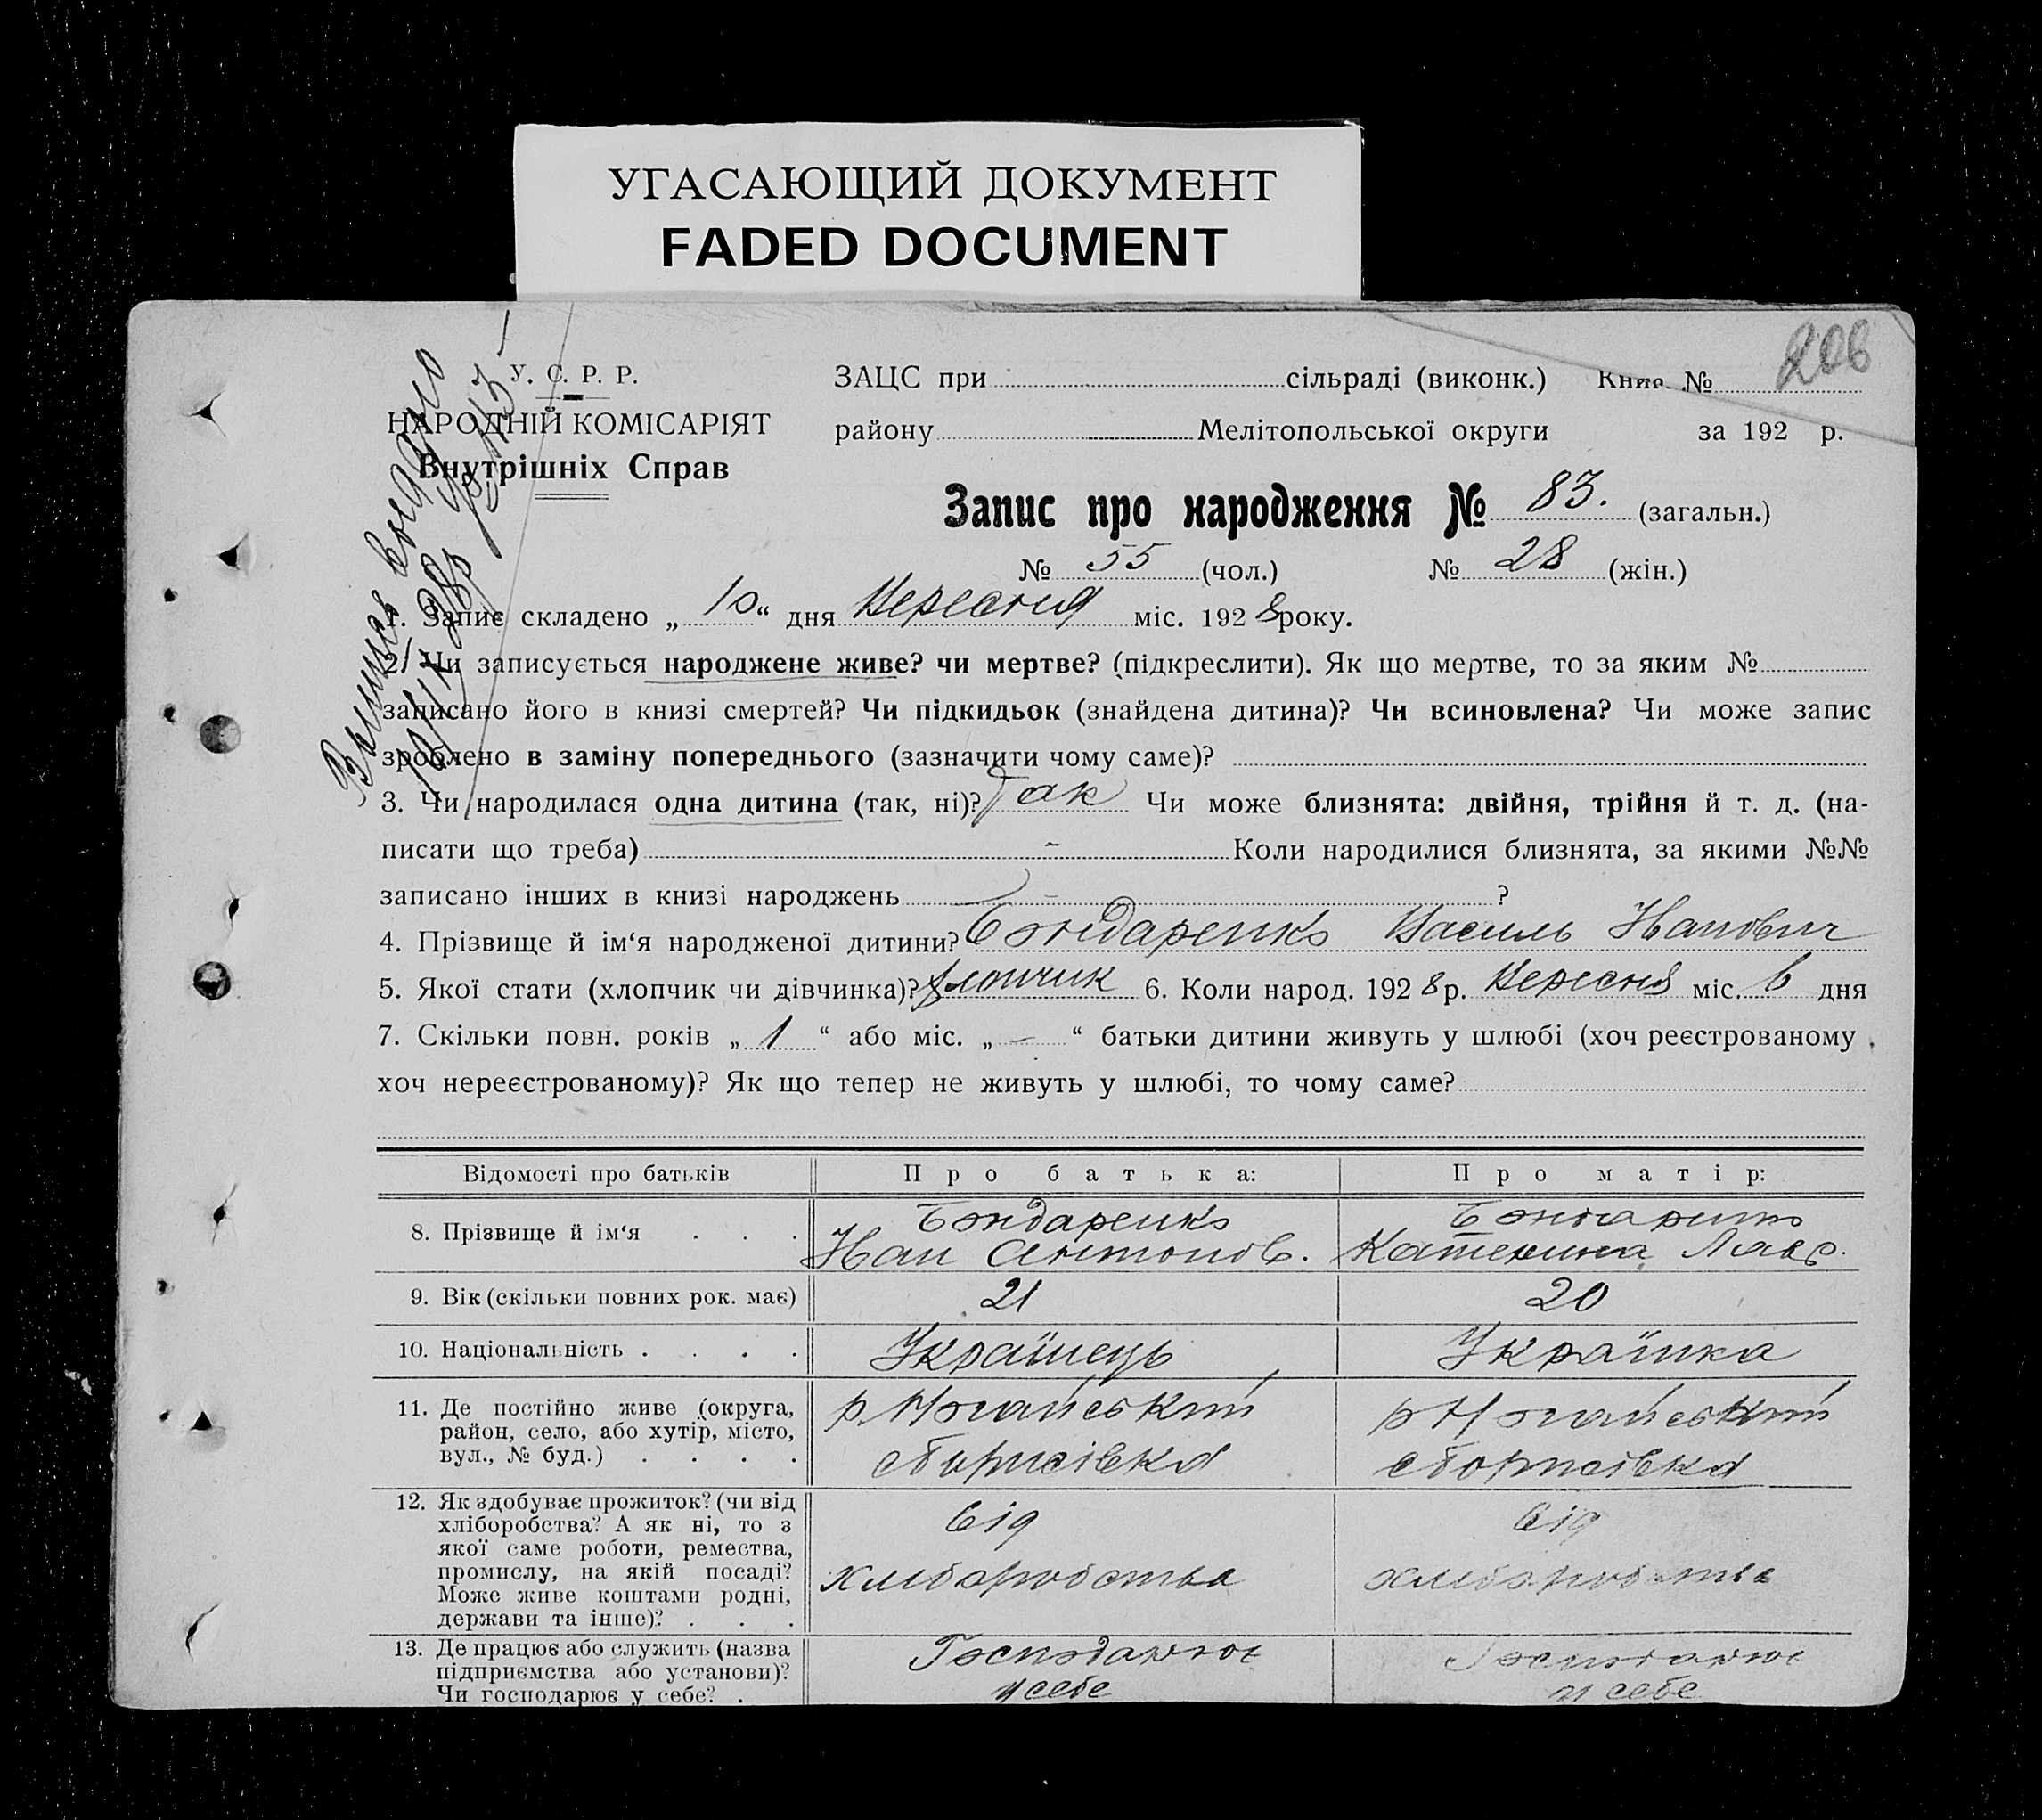 УГАСАЮЩИЙ ДОКУМЕНТ
FADED DOCUMENT
206
У. С. Р. Р.
НАРОДНІЙ КОМІСАРІЯТ
Внутрішніх Справ
Выпись выдано
ЗАЦС при сільраді (виконк.) Книг. №
району Мелітопольської округи за 192 р.
Запис про народження № 83. (загальн.)
№ 55 (чол.) № 28 (жін.)
1. Запис складено „ 10 “ дня Вересня міс. 1928 року.
2. Чи записується народжене живе? чи мертве? (підкреслити). Як що мертве, то за яким №
записано його в книзі смертей? Чи підкидьок (знайдена дитина)? Чи всиновлена? Чи може запис
зроблено в заміну попереднього (зазначити чому саме)?
3. Чи народилася одна дитина (так, ні)? Так Чи може близнята: двійня, трійня й т. д. (на-
писати що треба) - Коли народилися близнята, за якими №№
записано інших в книзі народжень - ?
4. Прізвище й ім‘я народженої дитини? Бондаренко Василь Іванович
5. Якої стати (хлопчик чи дівчинка)? хлопчик 6. Коли народ. 1928 р. Вересня міс. 6 дня
7. Скільки повн. років „ 1 “ або міс. „ - “ батьки дитини живуть у шлюбі (хоч реєстрованому
хоч нереєстрованому)? Як що тепер не живуть у шлюбі, то чому саме?
Відомості про батьків Про батька: Про матір:
8. Прізвище й ім‘я . . . Бондаренко Бондаренко
Іван Антонов. Катерина Лавр.
9. Вік (скільки повних рок. має) 21 20
10. Національність . . . . Українець Українка
11. Де постійно живе (округа, р. Ногайський р Ногайський
район, село, або хутір, місто,
вул., № буд.) . . . . с Борисівка с Борисівка
12. Як здобуває прожиток? (чи від від від
хліборобства? А як ні, то з
якої саме роботи, ремества,
промислу, на якій посаді? хліборобства хліборобства
Може живе коштами родні,
держави та інше)? . . .
13. Де працює або служить (назва Господарює Господарює
підприємства або установи)?
Чи господарює у себе? . у себе у себе